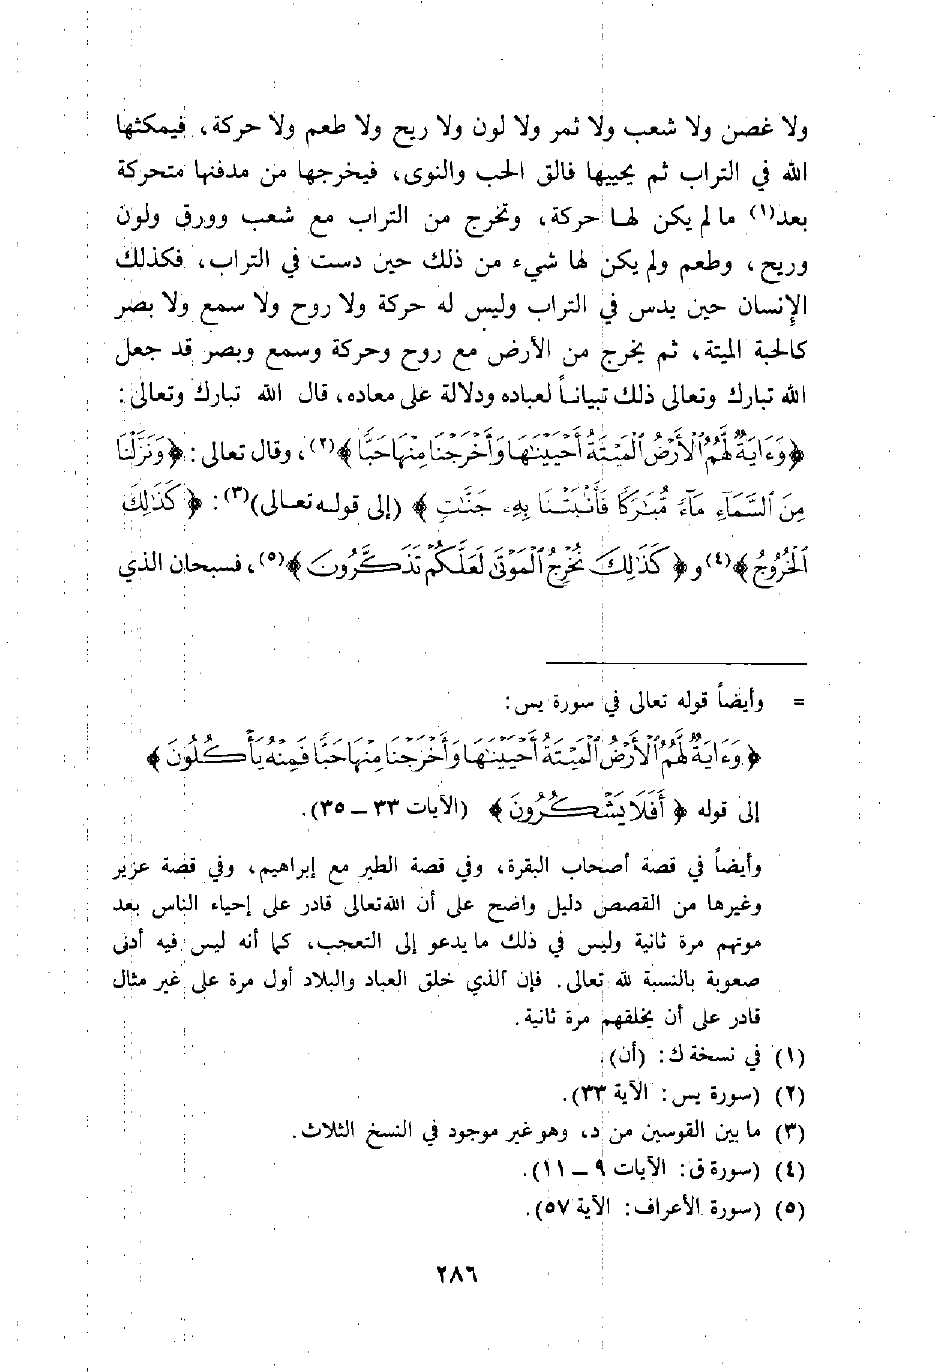 ولا غصن ولا شعب ولا ثمر ولا لون ولا ريح ولا طعم ولا حركة، فيمكثها
الله في التراب ثم يحييها فالق الحب والنوى، فيخرجها من مدفنها متحركة
بعد(١) ما لم يكن لها حركة، وتخرج من التراب مع شعب وورق ولون
وريح، وطعم ولم يكن لها شيء من ذلك حين دست في التراب، فكذلك
الإنسان حين يدس في التراب وليس له حركة ولا روح ولا سمع ولا بصر
كالحبة الميتة، ثم يخرج من الأرض مع روح وحركة وسمع وبصر قد جعل
الله تبارك وتعالى ذلك تبياناً لعباده ودلالة على معاده، قال الله تبارك وتعالى:
﴿وَءَايَةٌ لَّهُمُ ٱلْأَرْضُ ٱلْمَيْتَةُ أَحْيَيْنَٰهَا وَأَخْرَجْنَا مِنْهَا حَبًّا﴾(٢)، وقال تعالى: ﴿وَنَزَّلْنَا
مِنَ ٱلسَّمَآءِ مَآءً مُّبَٰرَكًا فَأَنۢبَتْنَا بِهِۦ جَنَّٰتٍ﴾ (إلى قوله تعالى)(٣): ﴿كَذَٰلِكَ
ٱلْخُرُوجُ﴾(٤) و﴿كَذَٰلِكَ نُخْرِجُ ٱلْمَوْتَىٰ لَعَلَّكُمْ تَذَكَّرُونَ﴾(٥)، فسبحان الذي
= وأيضاً قوله تعالى في سورة يس:
﴿وَءَايَةٌ لَّهُمُ ٱلْأَرْضُ ٱلْمَيْتَةُ أَحْيَيْنَٰهَا وَأَخْرَجْنَا مِنْهَا حَبًّا فَمِنْهُ يَأْكُلُونَ﴾
إلى قوله ﴿أَفَلَا يَشْكُرُونَ﴾ (الآيات ٣٣ – ٣٥).
وأيضاً في قصة أصحاب البقرة، وفي قصة الطير مع إبراهيم، وفي قصة عزير
وغيرها من القصص دليل واضح على أن الله تعالى قادر على إحياء الناس بعد
موتهم مرة ثانية وليس في ذلك ما يدعو إلى التعجب، كما أنه ليس فيه أدنى
صعوبة بالنسبة لله تعالى. فإن الذي خلق العباد والبلاد أول مرة على غير مثال
قادر على أن يخلقهم مرة ثانية.
(١) في نسخة ك: (أن).
(٢) (سورة يس: الآية ٣٣).
(٣) ما بين القوسين من د، وهو غير موجود في النسخ الثلاث.
(٤) (سورة ق: الآيات ٩ – ١١).
(٥) (سورة الأعراف: الآية ٥٧).
٢٨٦